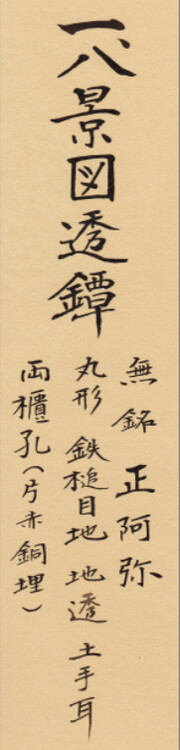 一、八景図透鐔
無銘 正阿弥
丸形 鉄槌目地 地透 土手耳
両櫃孔(片赤銅埋)